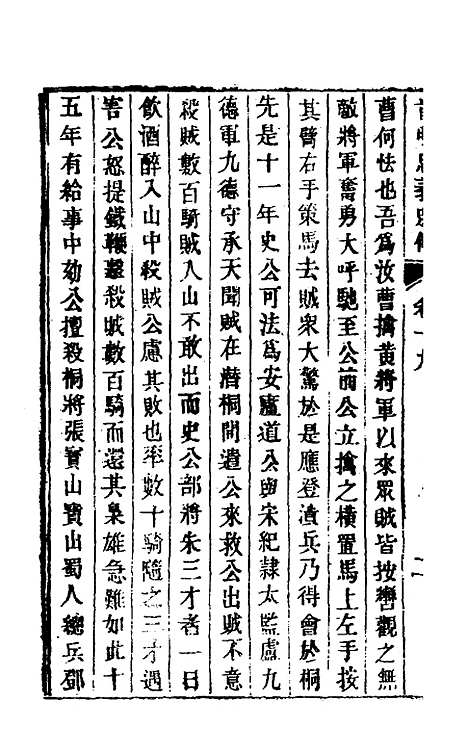 曹何怯也吾爲汝曹擒黃將軍以來眾賊皆按轡觀之無
敵將軍奮勇大呼馳至公前公立擒之橫置馬上左手按
其臂右手策馬去賊眾大驚於是應登潰兵乃得會於桐
先是十一年史公可法爲安廬道公與宋紀隷太監盧九
德軍九德守承天聞賊在潛桐間遣公來救公出賊不意
殺賊數百騎賊入山不敢出而史公部將朱三才者一日
飲酒醉入山中殺賊公慮其敗也率數十騎隨之三才遇
害公怒提鐵鞭鏖殺賊數百騎而還其梟雄急難如此十
五年有給事中劾公擅殺桐將張寶山寶山蜀人總兵鄧